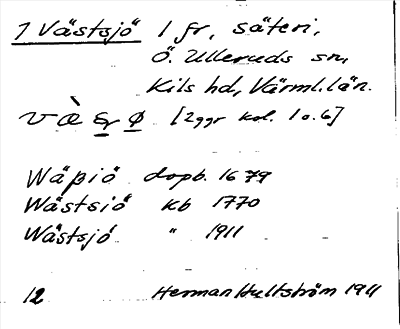 1 Västsjö 1 fr, säteri,
Ö. Ulleruds sn,
Kils hd, Värml. län.
[2ggr kol. 1 o. 6]
Wäpiö dopb. 1679
Wästsiö kb 1770
Wästsjö " 1911
12 Herman Hultström 1911